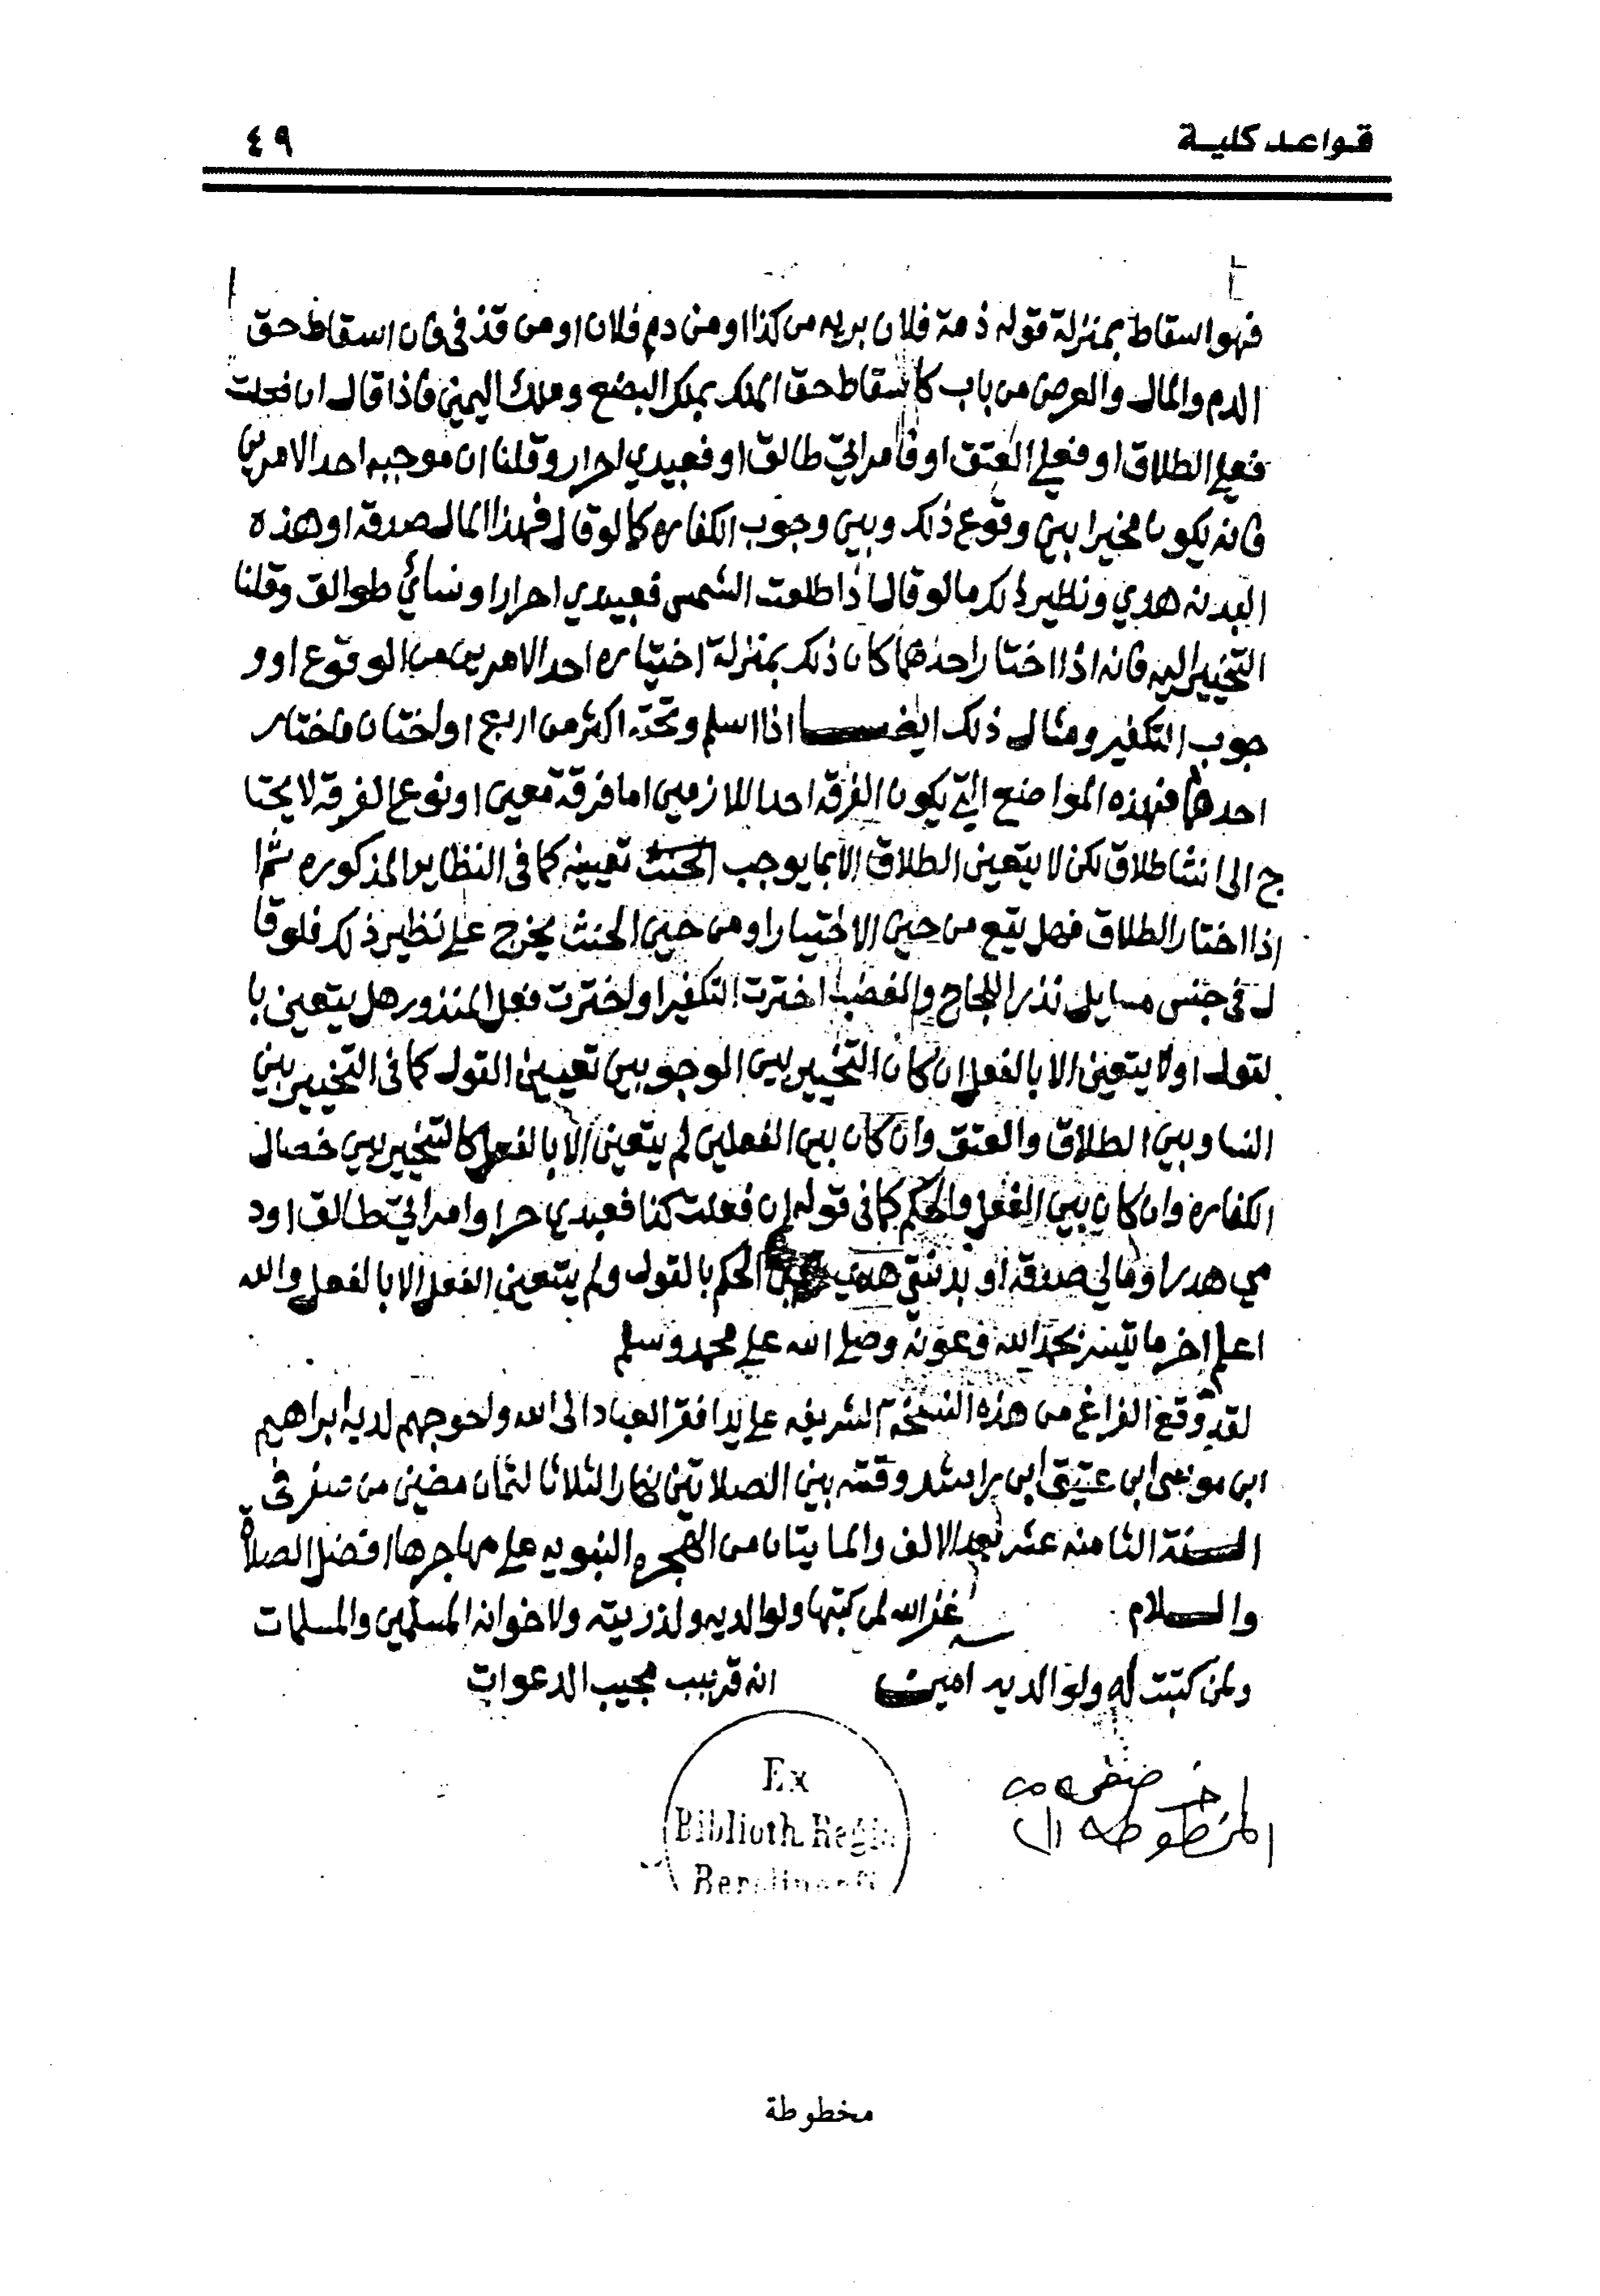 قواعد كلية
٤٩
فهو اسقاط بمنزلة قوله ذمة فلان بريه من كذا او من دم فلان او من قذفي فان اسقاط حق
الدم والمال والعرض من باب كاسقاط حق الملك بملك البضع وملك اليمين فاذا قال ان فعلت
فعلي الطلاق او فعلي العتق او فامراتي طالق او فعبيدي احرار وقلنا ان موجبه احد الامرين
فانه يكون مخيرا بين وقوع ذلك وبين وجوب الكفاره كما لو قال فهذا المال صدقه او هذه
البدنه هدي ونظير ذلك ما لو قال اذا طلعت الشمس فعبيدي احرار او نسائي طوالق وقلنا
التخيير اليه فانه اذا اختار احدهما كان ذلك بمنزلة اختياره احد الامرين من الوقوع او و
جوب التكفير ومثال ذلك ايضـا اذا اسلم وتحته اكثر من اربع او اختان فاختار
احدهما فهذه المواضع التي يكون الفرقه احد اللازمين اما فرقة معين او نوع الفرقه لا يحتا
ج الى انشا طلاق لكن لا يتعين الطلاق الا بما يوجب الحنث تعيينه كما في النظاير المذكوره ثم
اذا اختار الطلاق فهل يقع من حين الاختيار او من حين الحنث يخرج على نظير ذلك فلو قا
ل في جنس مسايل نذر اللجاج والغضب اخترت التكفير او اخترت فعل المنذور هل يتعين با
لقول او لا يتعين الا بالفعل ان كان التخيير بين الوجوبين تعين بالقول كما في التخيير بين
النسا وبين الطلاق والعتق وان كان بين الفعلين لم يتعين الا بالفعل كالتخيير بين خصال
الكفاره وان كان بين الفعل والحكم كما في قوله ان فعلت كذا فعبدي حر او امراتي طالق او د
مي هدر او مالي صدقه او بدنتي هدي الحكم بالقول ولم يتعين الفعل الا بالفعل والله
اعلم اخر ما تيسر بحمد الله وعونه وصلى الله على محمد وسلم
لقد وقع الفراغ من هذه النسخة الشريفه على يد افقر العباد الى الله واحوجهم لديه ابراهيم
ابن موسى ابن عتيق ابن راشد وقته بين الصلاتين نهار الثلاثا لثمان مضين من صفر في
السنة الثامنه عشر بعد الالف والمايتان من الهجره النبويه على مهاجرها افضل الصلاة
والسلام غفر الله لمن كتبها ولوالديه ولذريته ولاخوانه المسلمين والمسلمات
ولمن كتبت له ولوالديه امين انه قريب مجيب الدعوات
Ex
Biblioth. Regia
Berolinensi
اخر صفحه من
المخطوطه
مخطوطة